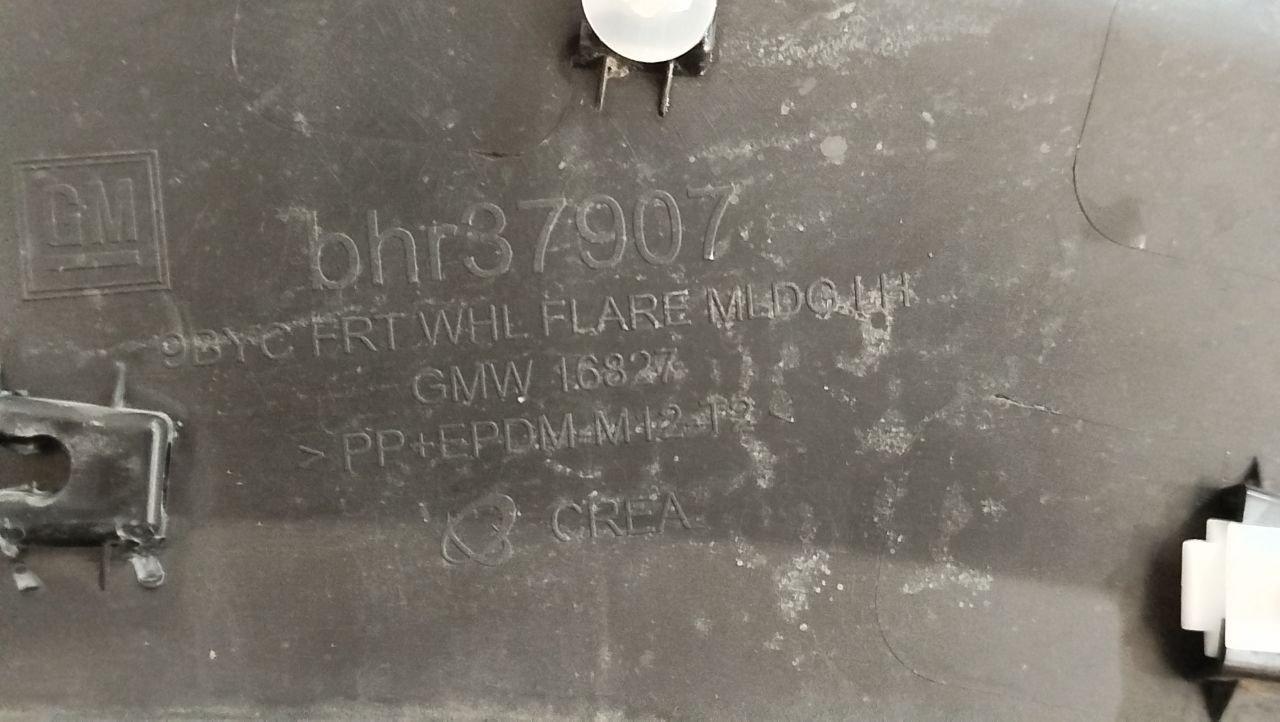 GM
bhr37907
9BYC FRT WHL FLARE MLDG LH
GMW 16827
> PP+EPDM-M12-T2 <
CREA